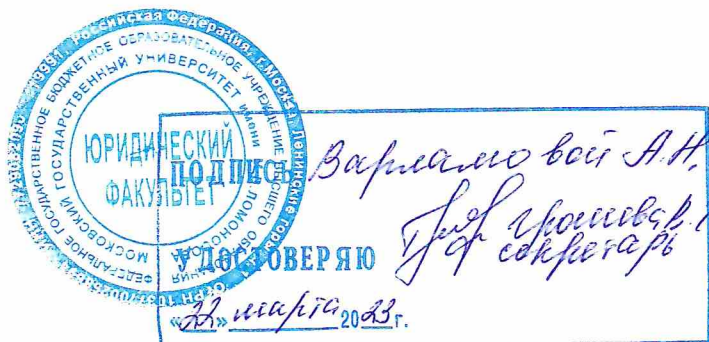 Российская Федерация, г. Москва, Ленинские горы
ФЕДЕРАЛЬНОЕ ГОСУДАРСТВЕННОЕ БЮДЖЕТНОЕ ОБРАЗОВАТЕЛЬНОЕ УЧРЕЖДЕНИЕ ВЫСШЕГО
МОСКОВСКИЙ ГОСУДАРСТВЕННЫЙ УНИВЕРСИТЕТ имени ЛОМОНОСОВА
ЮРИДИЧЕСКИЙ
ФАКУЛЬТЕТ
ПОДПИСЬ Варламовой А.Н.
секретарь
УДОСТОВЕРЯЮ
«22» марта 2023 г.